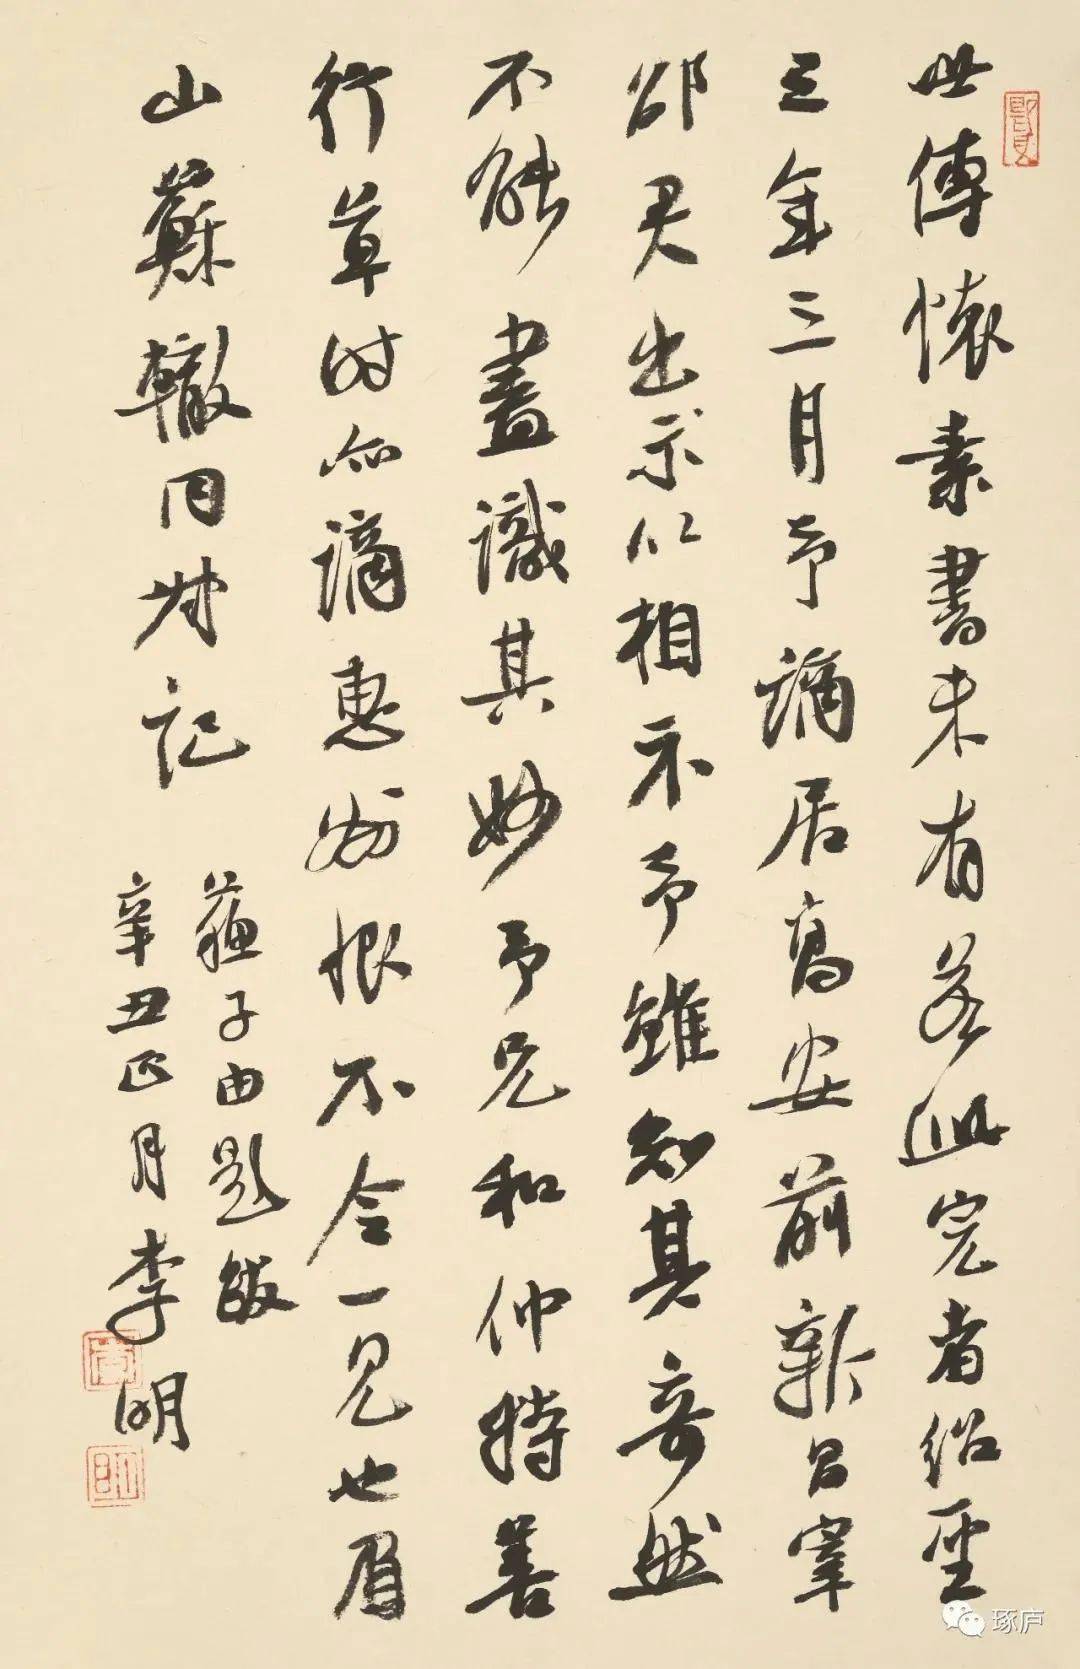 世傳懷素書未有若此完者紹聖
三年三月予謫居高安前新昌宰
邵君出示以相示予雖知其奇然
不能盡識其妙予兄和仲特善
行草時亦謫惠州恨不令一見也眉
山蘇轍同叔記
蘇子由題跋
辛丑正月李明
琢庐